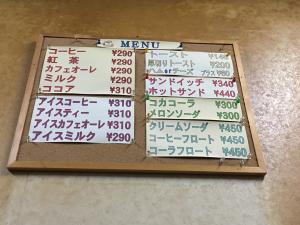 MENU
コーヒー ¥290
紅茶 ¥290
カフェオーレ ¥290
ミルク ¥290
ココア ¥310
アイスコーヒー ¥310
アイスティー ¥310
アイスカフェオーレ ¥310
アイスミルク ¥290
トースト
厚切りトースト ¥200
ハムorチーズ プラス¥80
サンドイッチ ¥340
ホットサンド ¥440
コカコーラ ¥300
メロンソーダ ¥300
クリームソーダ ¥450
コーヒーフロート ¥450
コーラフロート ¥450